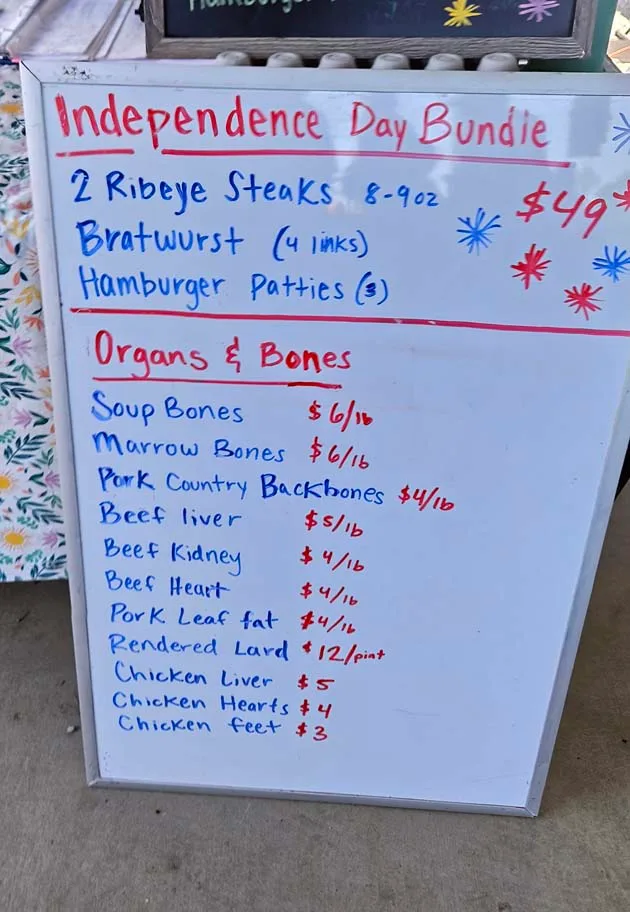 Hamburger
Independence Day Bundle
2 Ribeye Steaks 8-9oz $49
Bratwurst (4 links)
Hamburger Patties (3)
Organs & Bones
Soup Bones $6/lb
Marrow Bones $6/lb
Pork Country Backbones $4/lb
Beef liver $5/lb
Beef Kidney $4/lb
Beef Heart $4/lb
Pork Leaf fat $4/lb
Rendered Lard $12/pint
Chicken Liver $5
Chicken Hearts $4
Chicken feet $3